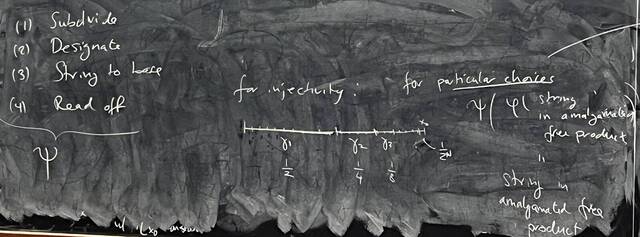 (1) Subdivide
(2) Designate
(3) String to base
(4) Read off
Ψ
for injectivity :
γ1 γ2 γ3
1/2 1/4 1/8 1/2^N
for particular choices
Ψ( φ( string
in amalgamated
free product
"
string in
amalgamated free
product